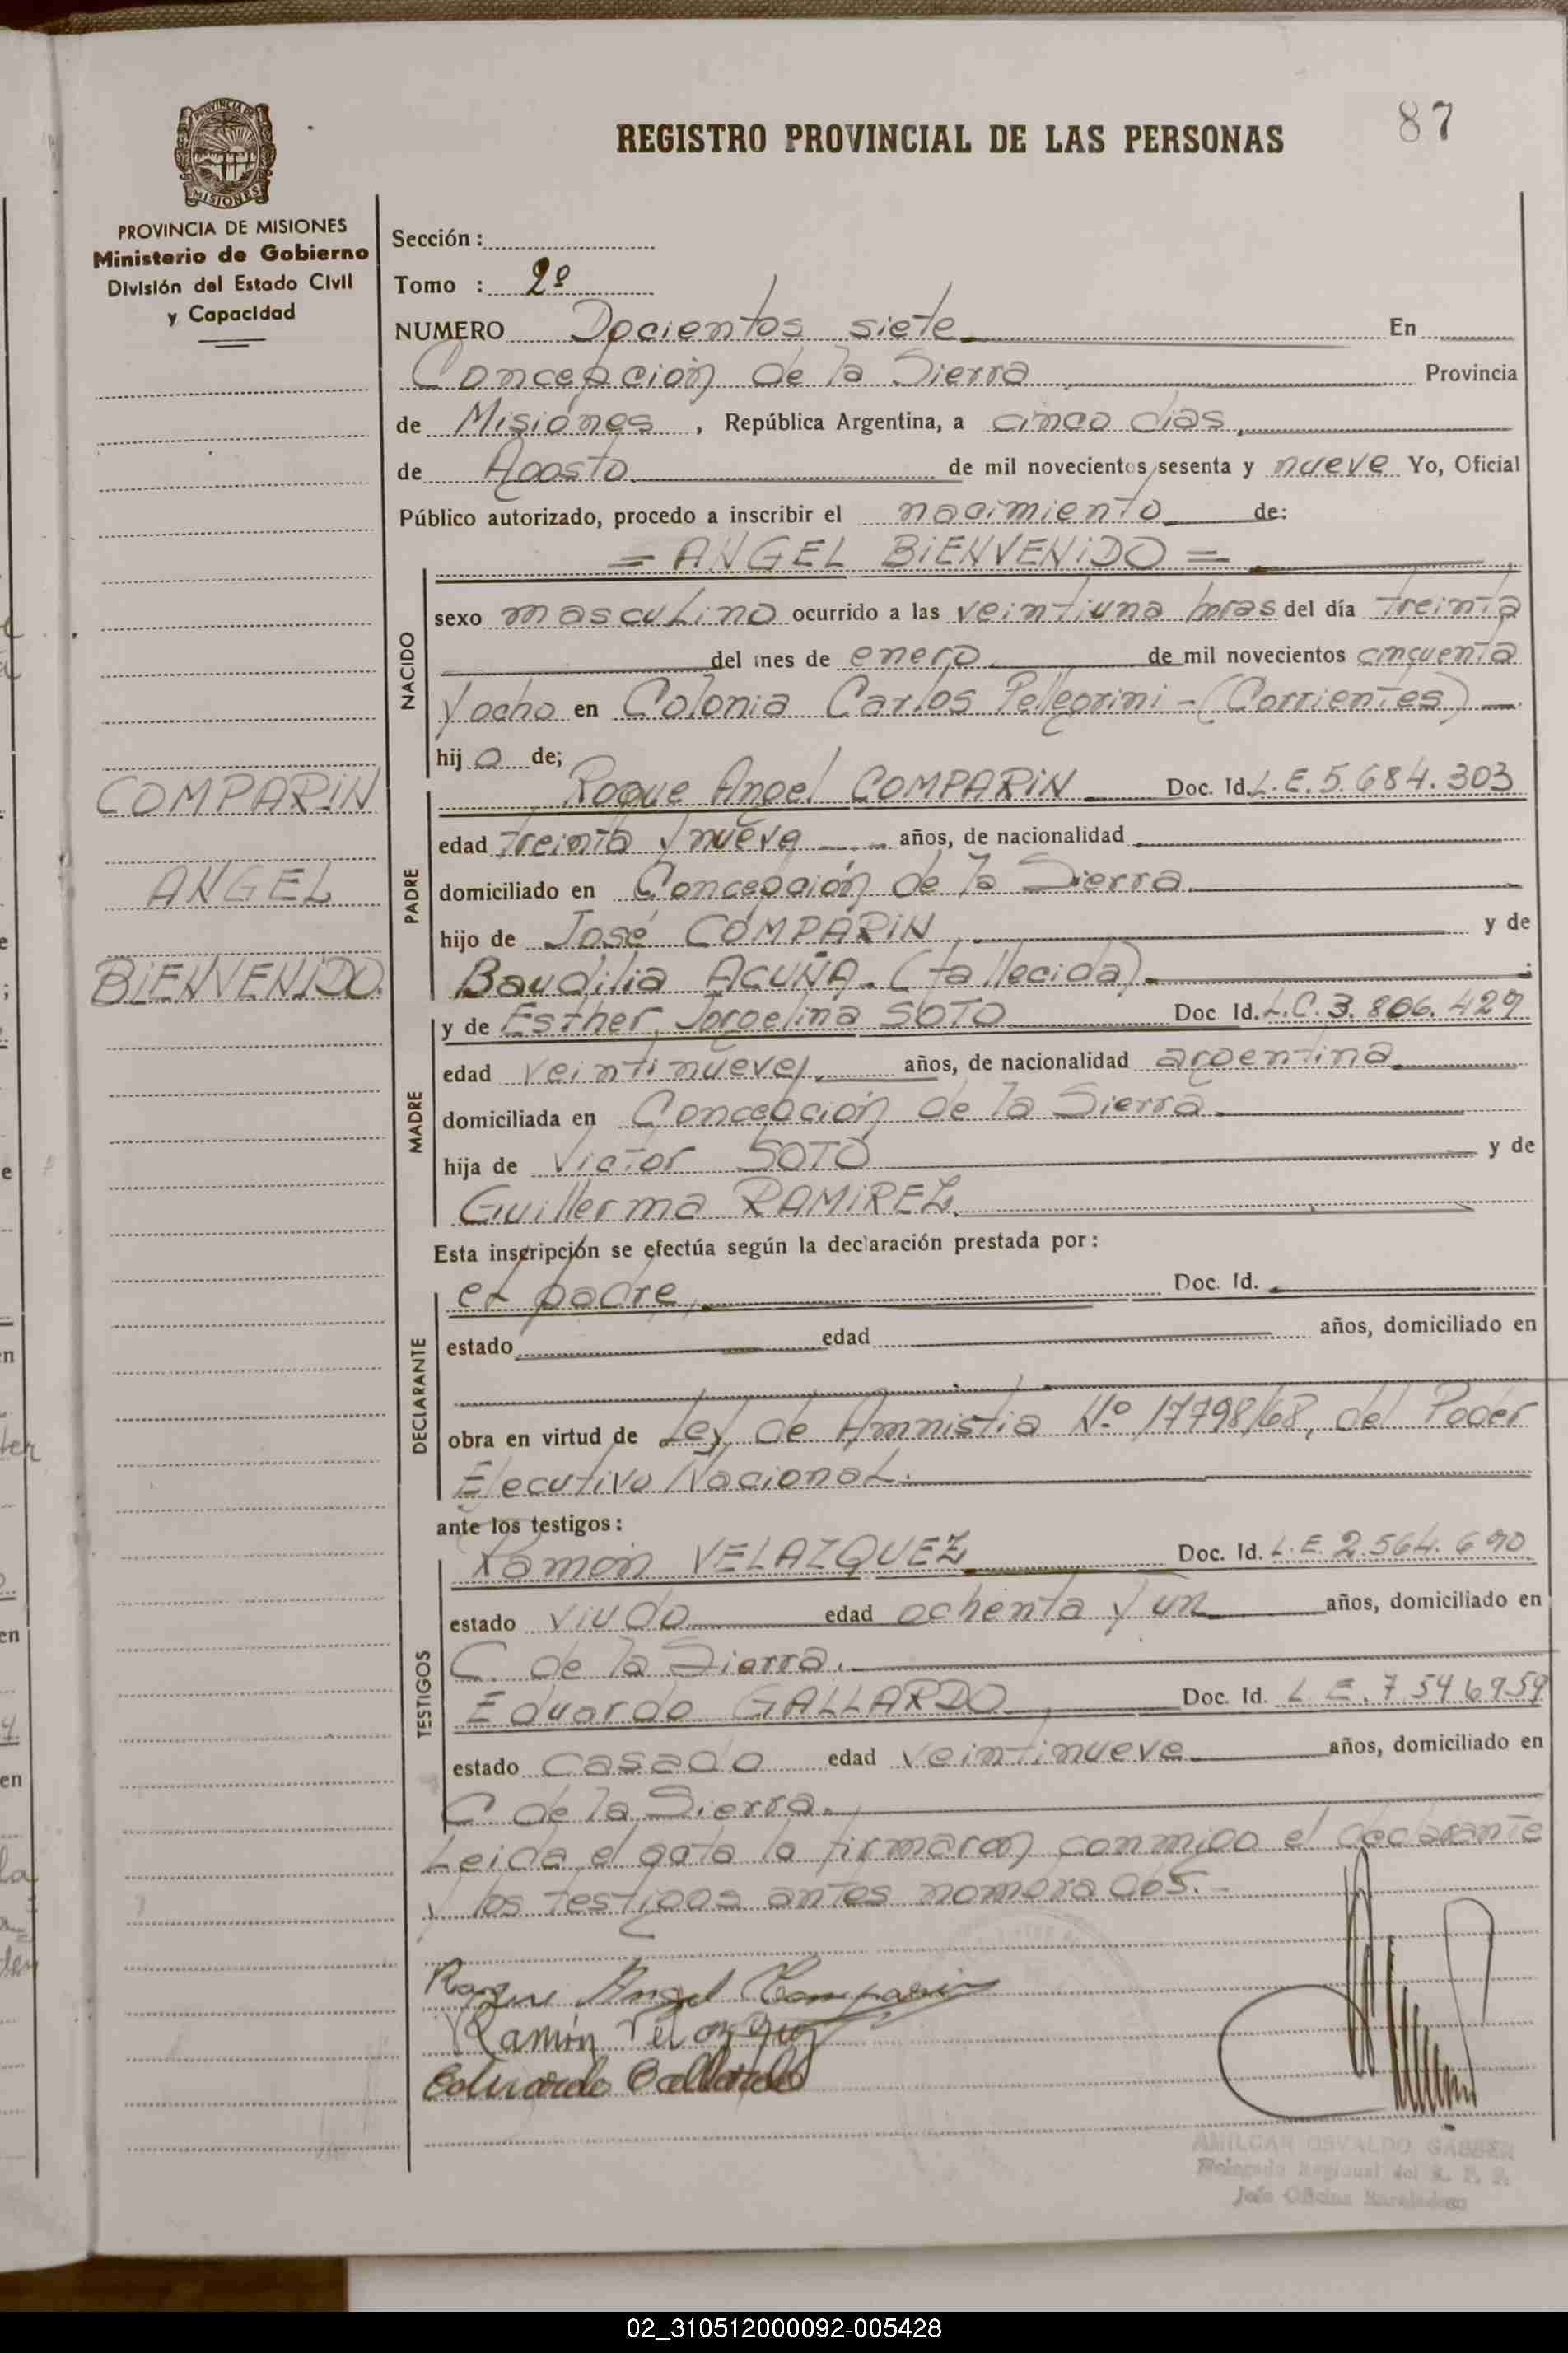 87
REGISTRO PROVINCIAL DE LAS PERSONAS
PROVINCIA DE MISIONES
Ministerio de Gobierno
División del Estado Civil
y Capacidad
Sección:
Tomo : 2º
NUMERO Docientos siete En
Concepción de la Sierra Provincia
de Misiones, República Argentina, a cinco dias
de Agosto de mil novecientos sesenta y nueve Yo, Oficial
Público autorizado, procedo a inscribir el nacimiento de:
= ANGEL BIENVENIDO =
NACIDO
sexo masculino ocurrido a las veintiuna horas del día treinta
del mes de enero de mil novecientos cincuenta
y ocho en Colonia Carlos Pellegrini - (Corrientes)
hijo de;
COMPARIN
ANGEL
BIENVENIDO.
PADRE
Roque Angel COMPARIN Doc. Id. L.E. 5.684.303
edad treinta y nueve años, de nacionalidad
domiciliado en Concepción de la Sierra
hijo de José COMPARIN y de
Baudilia ACUÑA. (fallecida).
MADRE
y de Esther Jorgelina SOTO Doc Id. L.C. 3.806.429
edad veintinueve años, de nacionalidad argentina
domiciliada en Concepción de la Sierra
hija de Victor SOTO y de
Guillerma RAMIREZ.
Esta inscripción se efectúa según la declaración prestada por:
DECLARANTE
el padre, Doc. Id.
estado edad años, domiciliado en
obra en virtud de Ley de Amnistia Nº 17798/68, del Poder
Ejecutivo Nacional.
ante los testigos:
TESTIGOS
Ramón VELAZQUEZ Doc. Id. L.E. 2.564.690
estado viudo edad ochenta y un años, domiciliado en
C. de la Sierra.
Eduardo GALLARDO Doc. Id. L.E. 7.546959
estado casado edad veintinueve años, domiciliado en
C. de la Sierra.
Leida el acta la firmaron conmigo el declarante
y los testigos antes nombrados.-
Roque Angel Comparin
Ramón Velazquez
Eduardo Gallardo
AMILCAR OSVALDO
Delegado Regional del R. P. P.
Jefe Oficina
02_310512000092-005428